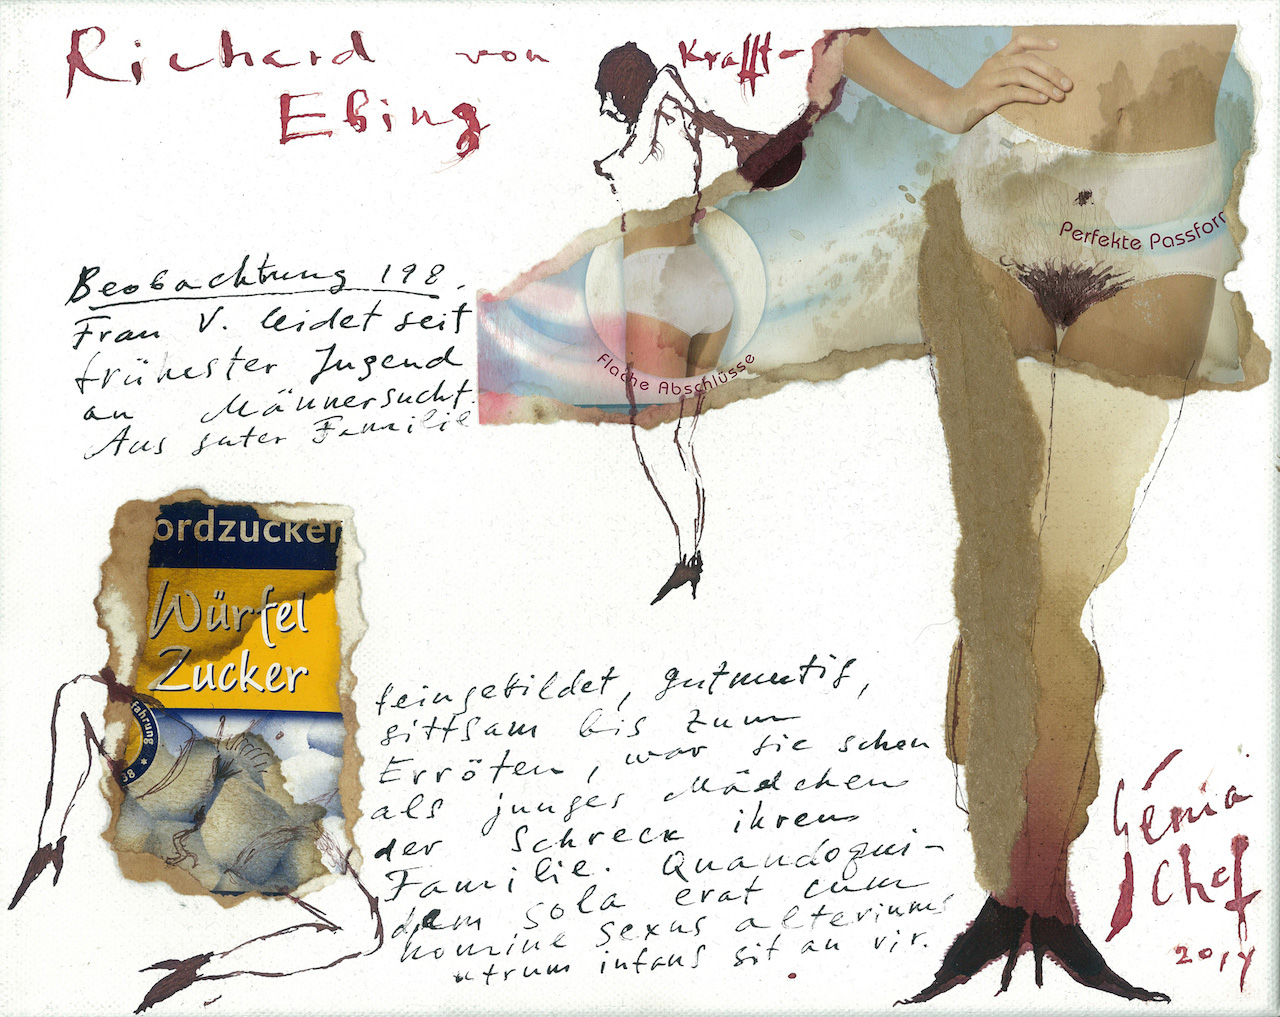 Richard von Krafft-
Ebing
Perfekte Passform
Flache Abschlüsse
Beobachtung 198.
Frau V. leidet seit
frühester Jugend
an Männersucht.
Aus guter Familie
ordzucker
Würfel
Zucker
fahrung
38 *
feingebildet, gutmutig,
sittsam bis zum
Erröten, war sie schon
als junges Mädchen
der Schreck ihrer
Familie. Quandoqui-
dem sola erat cum
homine sexus alteriums
utrum infans sit an vir.
Génia
Chef
2014